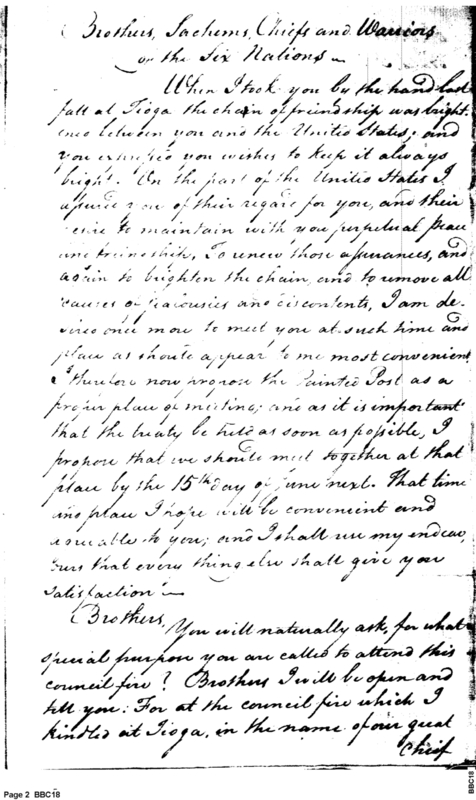 Brothers, Sachems, Chiefs and Warriors
of the Six Nations
When I took you by the hand last
fall at Tioga the chain of friendship was bright-
ened between you and the United States; and
you expressed you wishes to keep it always
bright. On the part of the United States I
assured you of their regard for you, and their
desire to maintain with you perpetual peace
and friendship. To renew those assurances, and
again to brighten the chain, and to remove all
causes of jealousies and discontents, I am de-
sired once more to meet you at such time and
place as should appear to me most convenient.
I therefore now propose the Painted Post as a
proper place of meeting; and as it is important
that the treaty be held as soon as possible, I
propose that we should meet together at that
place by the 15th day of June next. That time
and place I hope will be convenient and
agreeable to you; and I shall use my endeav
ours that every thing else shall give you
satisfaction
Brothers,
You will naturally ask, for what
special purpose you are called to attend this
council fire? Brothers I will be open and
tell you: For at the council fire which I
kindled at Tioga, in the name of our great
Chief
Page 2 BBC18
BBC18